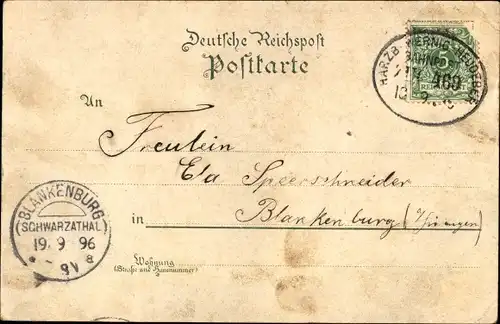 Deutsche Reichspost
Postkarte
An
Freulein
Ela Speerschneider
in Blankenburg (Thüringen)
Wohnung
(Straße und Hausnummer)
BLANKENBURG
SCHWARZATHAL
19 9 96
8V a
HARZB. WERNIG
BAHNP
ZUG 160
5